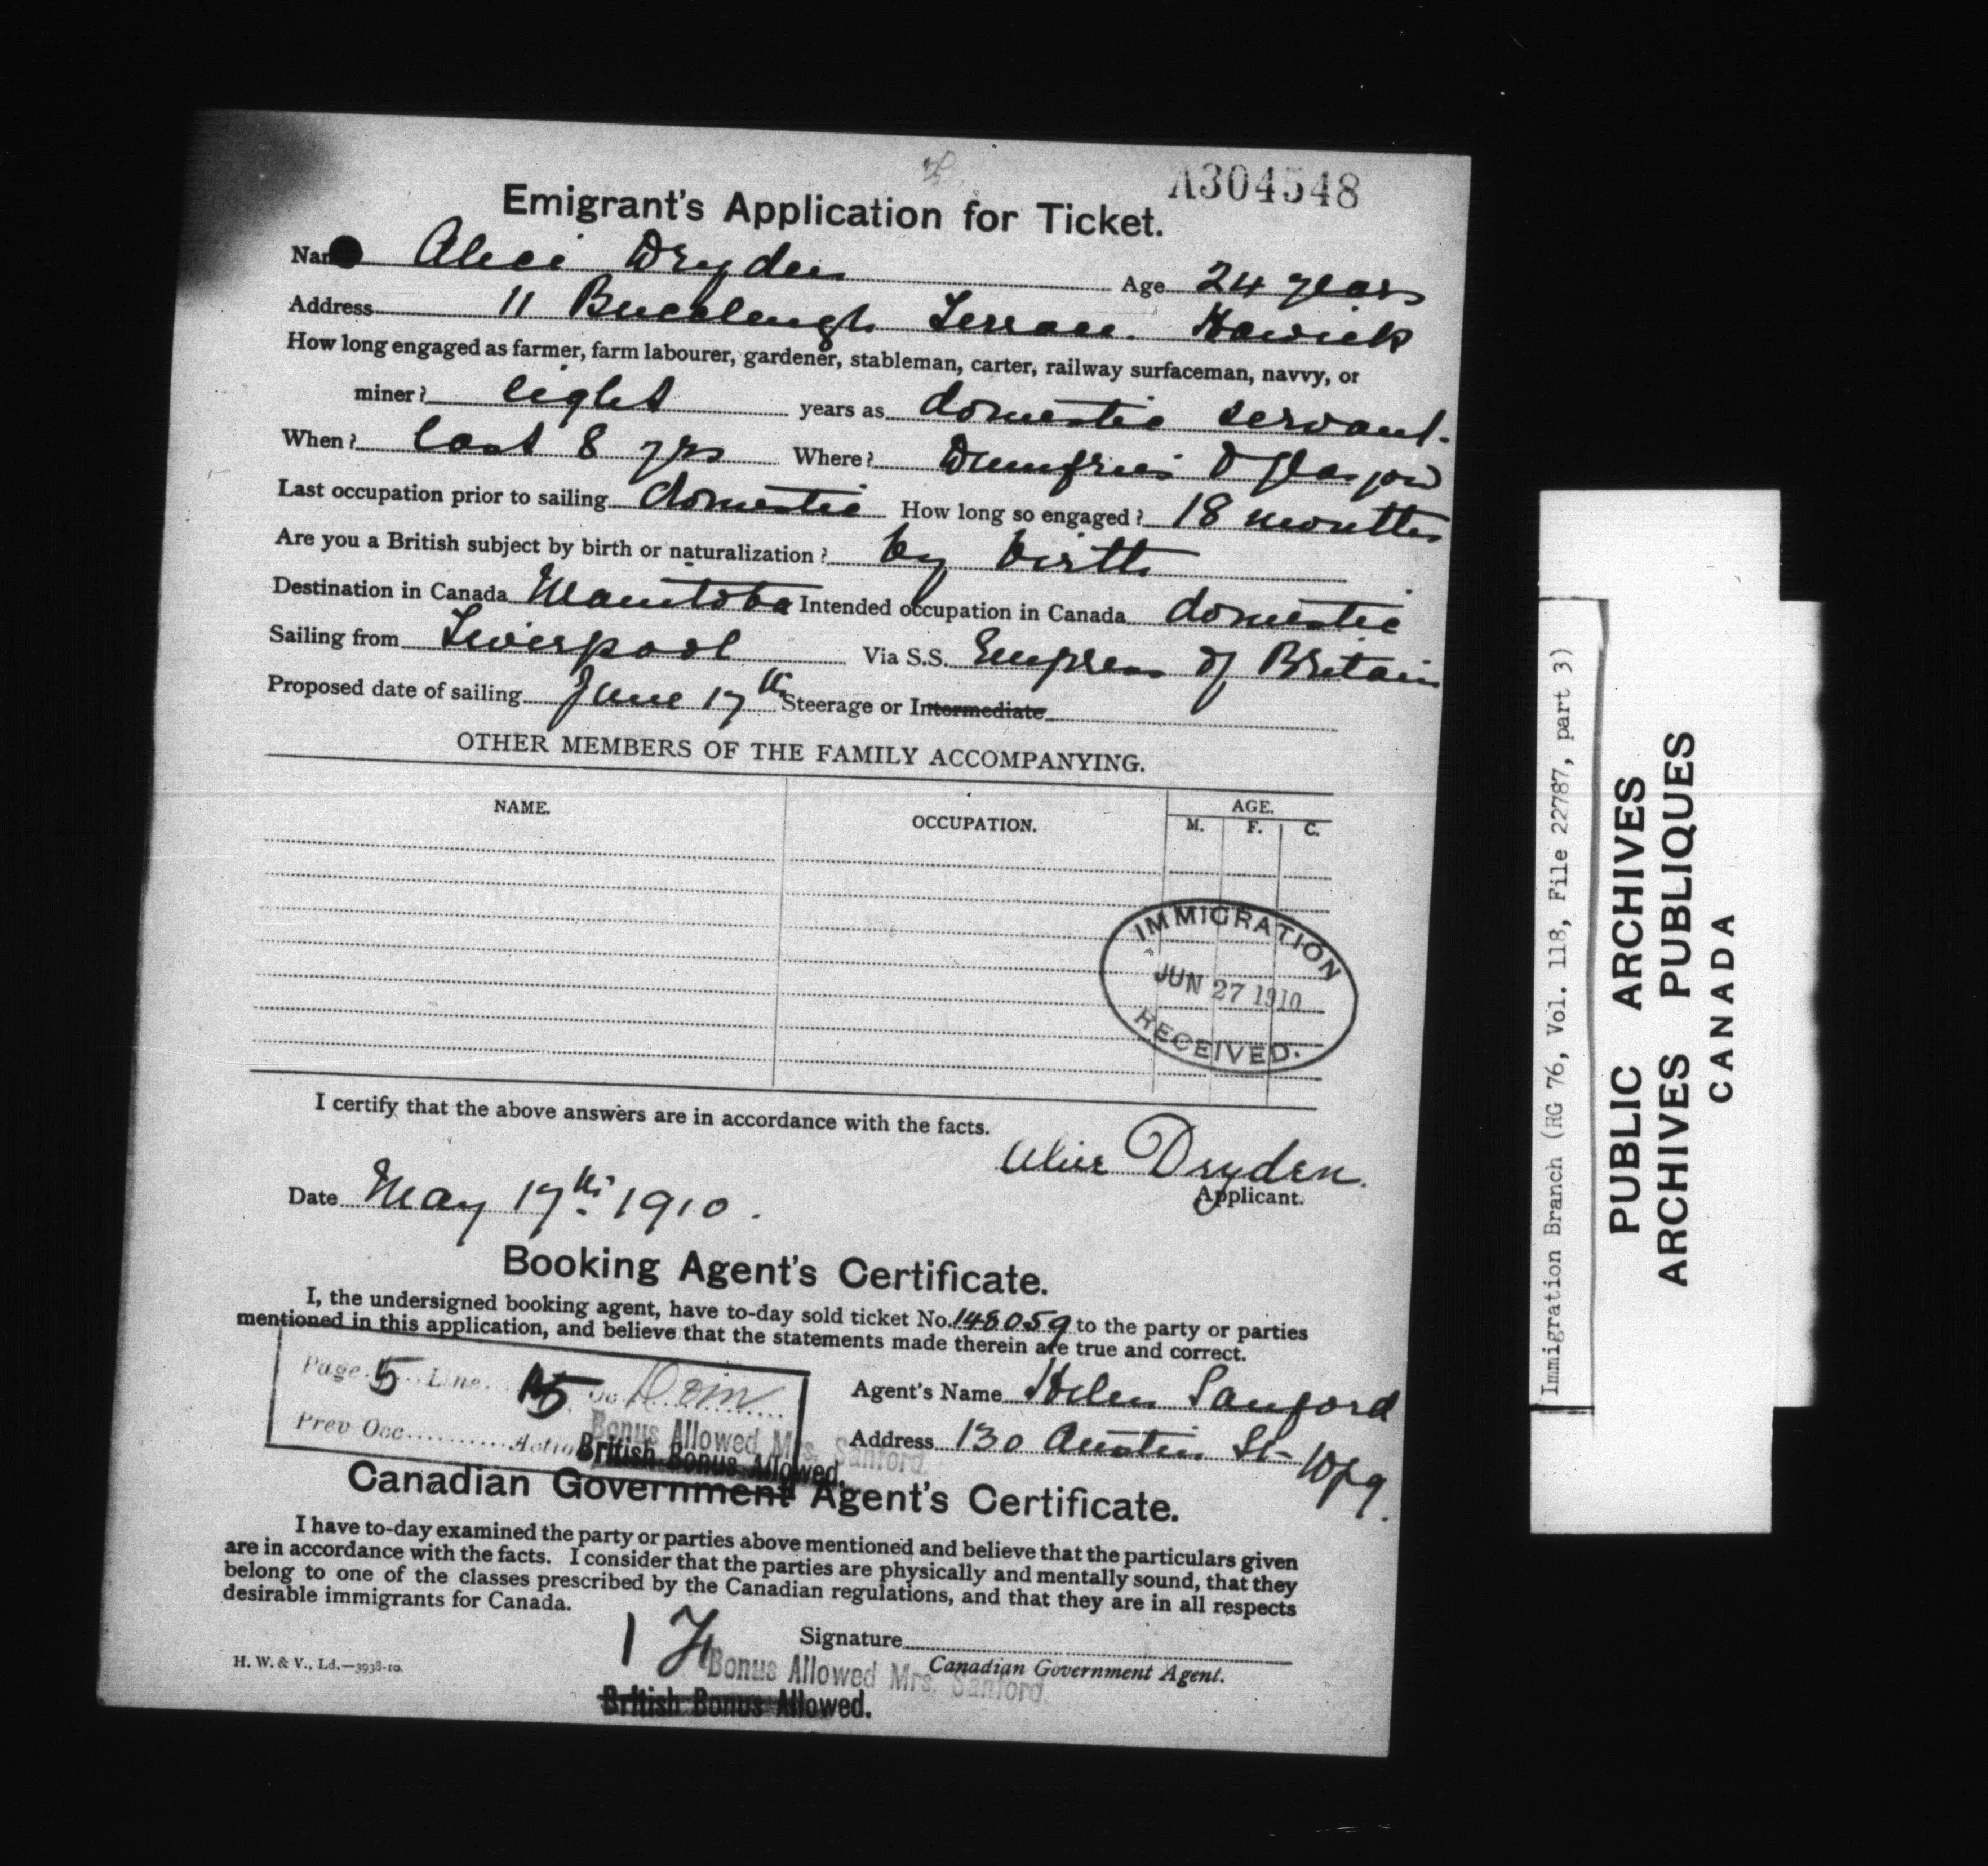 A304548
Emigrant's Application for Ticket.
Name Alice Dryden Age 24 years
Address 11 Buccleugh Terrace. Hawick
How long engaged as farmer, farm labourer, gardener, stableman, carter, railway surfaceman, navvy, or
miner? eight years as domestic servant.
When? last 8 yrs Where? Dumfries & Glasgow
Last occupation prior to sailing domestic How long so engaged? 18 months
Are you a British subject by birth or naturalization? by birth
Destination in Canada Manitoba Intended occupation in Canada domestic
Sailing from Liverpool Via S.S. Empress of Britain
Proposed date of sailing June 17th Steerage or Intermediate
OTHER MEMBERS OF THE FAMILY ACCOMPANYING.
NAME. OCCUPATION. AGE.
M. F. C.
IMMIGRATION
JUN 27 1910
RECEIVED.
I certify that the above answers are in accordance with the facts.
Alice Dryden.
Applicant.
Date May 17th 1910.
Booking Agent's Certificate.
I, the undersigned booking agent, have to-day sold ticket No. 148059 to the party or parties
mentioned in this application, and believe that the statements made therein are true and correct.
Page 5 Line 15 Oc Dom
Prev Occ Action
Bonus Allowed Mrs. Sanford.
British Bonus Allowed.
Agent's Name Helen Sanford
Address 130 Austin St- Wpg.
Canadian Government Agent's Certificate.
I have to-day examined the party or parties above mentioned and believe that the particulars given
are in accordance with the facts. I consider that the parties are physically and mentally sound, that they
belong to one of the classes prescribed by the Canadian regulations, and that they are in all respects
desirable immigrants for Canada.
Signature
Canadian Government Agent.
H. W. & V., Ld.—3938-10.
Bonus Allowed Mrs. Sanford.
British Bonus Allowed.
Immigration Branch (RG 76, Vol. 118, File 22787, part 3)
PUBLIC ARCHIVES
ARCHIVES PUBLIQUES
CANADA